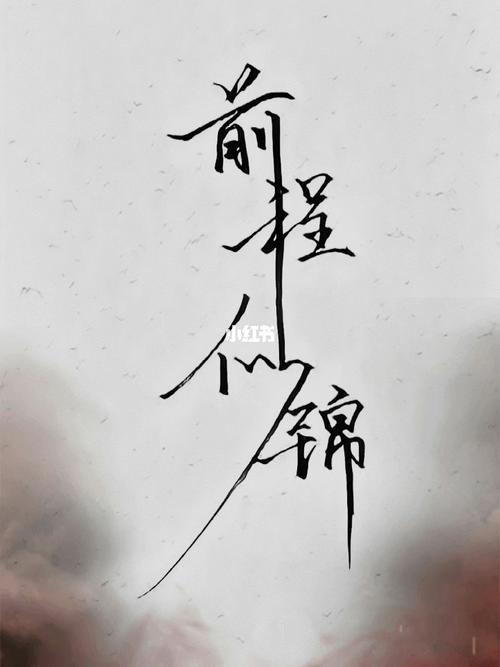 前程似锦
小红书